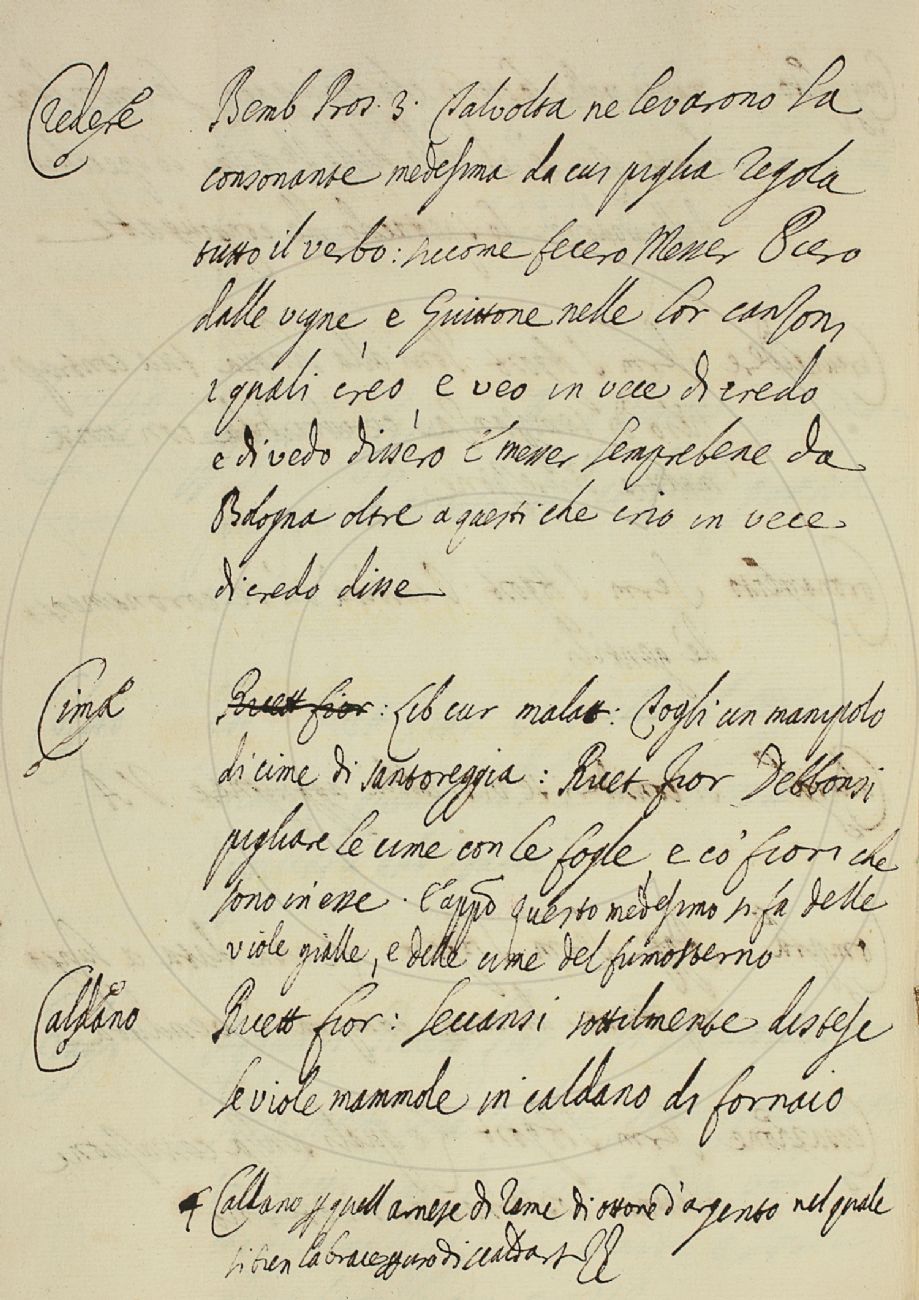 Credere
Bemb Pros. 3. Talvolta ne levarono la
consonante medesima da cui piglia regola
tutto il verbo: siccome fecero Messer Piero
dalle vigne e Guittone nelle lor canzoni
i quali creo, e veo in vece di credo
e di vedo dissero E messer Semprebene da
Bologna oltre a questi che crio in vece
di credo disse
Cima
Ricett fior: Lib cur malatt: Togli un manipolo
di cime di santoreggia: Ricet fior Debbonsi
pigliare le cime con le foglie, e co' fiori che
sono in esse. E appo questo medesimo si fa delle
viole gialle, e delle cime del fumosterno
Caldano
Ricett fior: Seccansi sottilmente distese
le viole mammole in caldano di fornaio
Caldano quell arnese di rame di ottone d'argento nel quale
si tien la brace